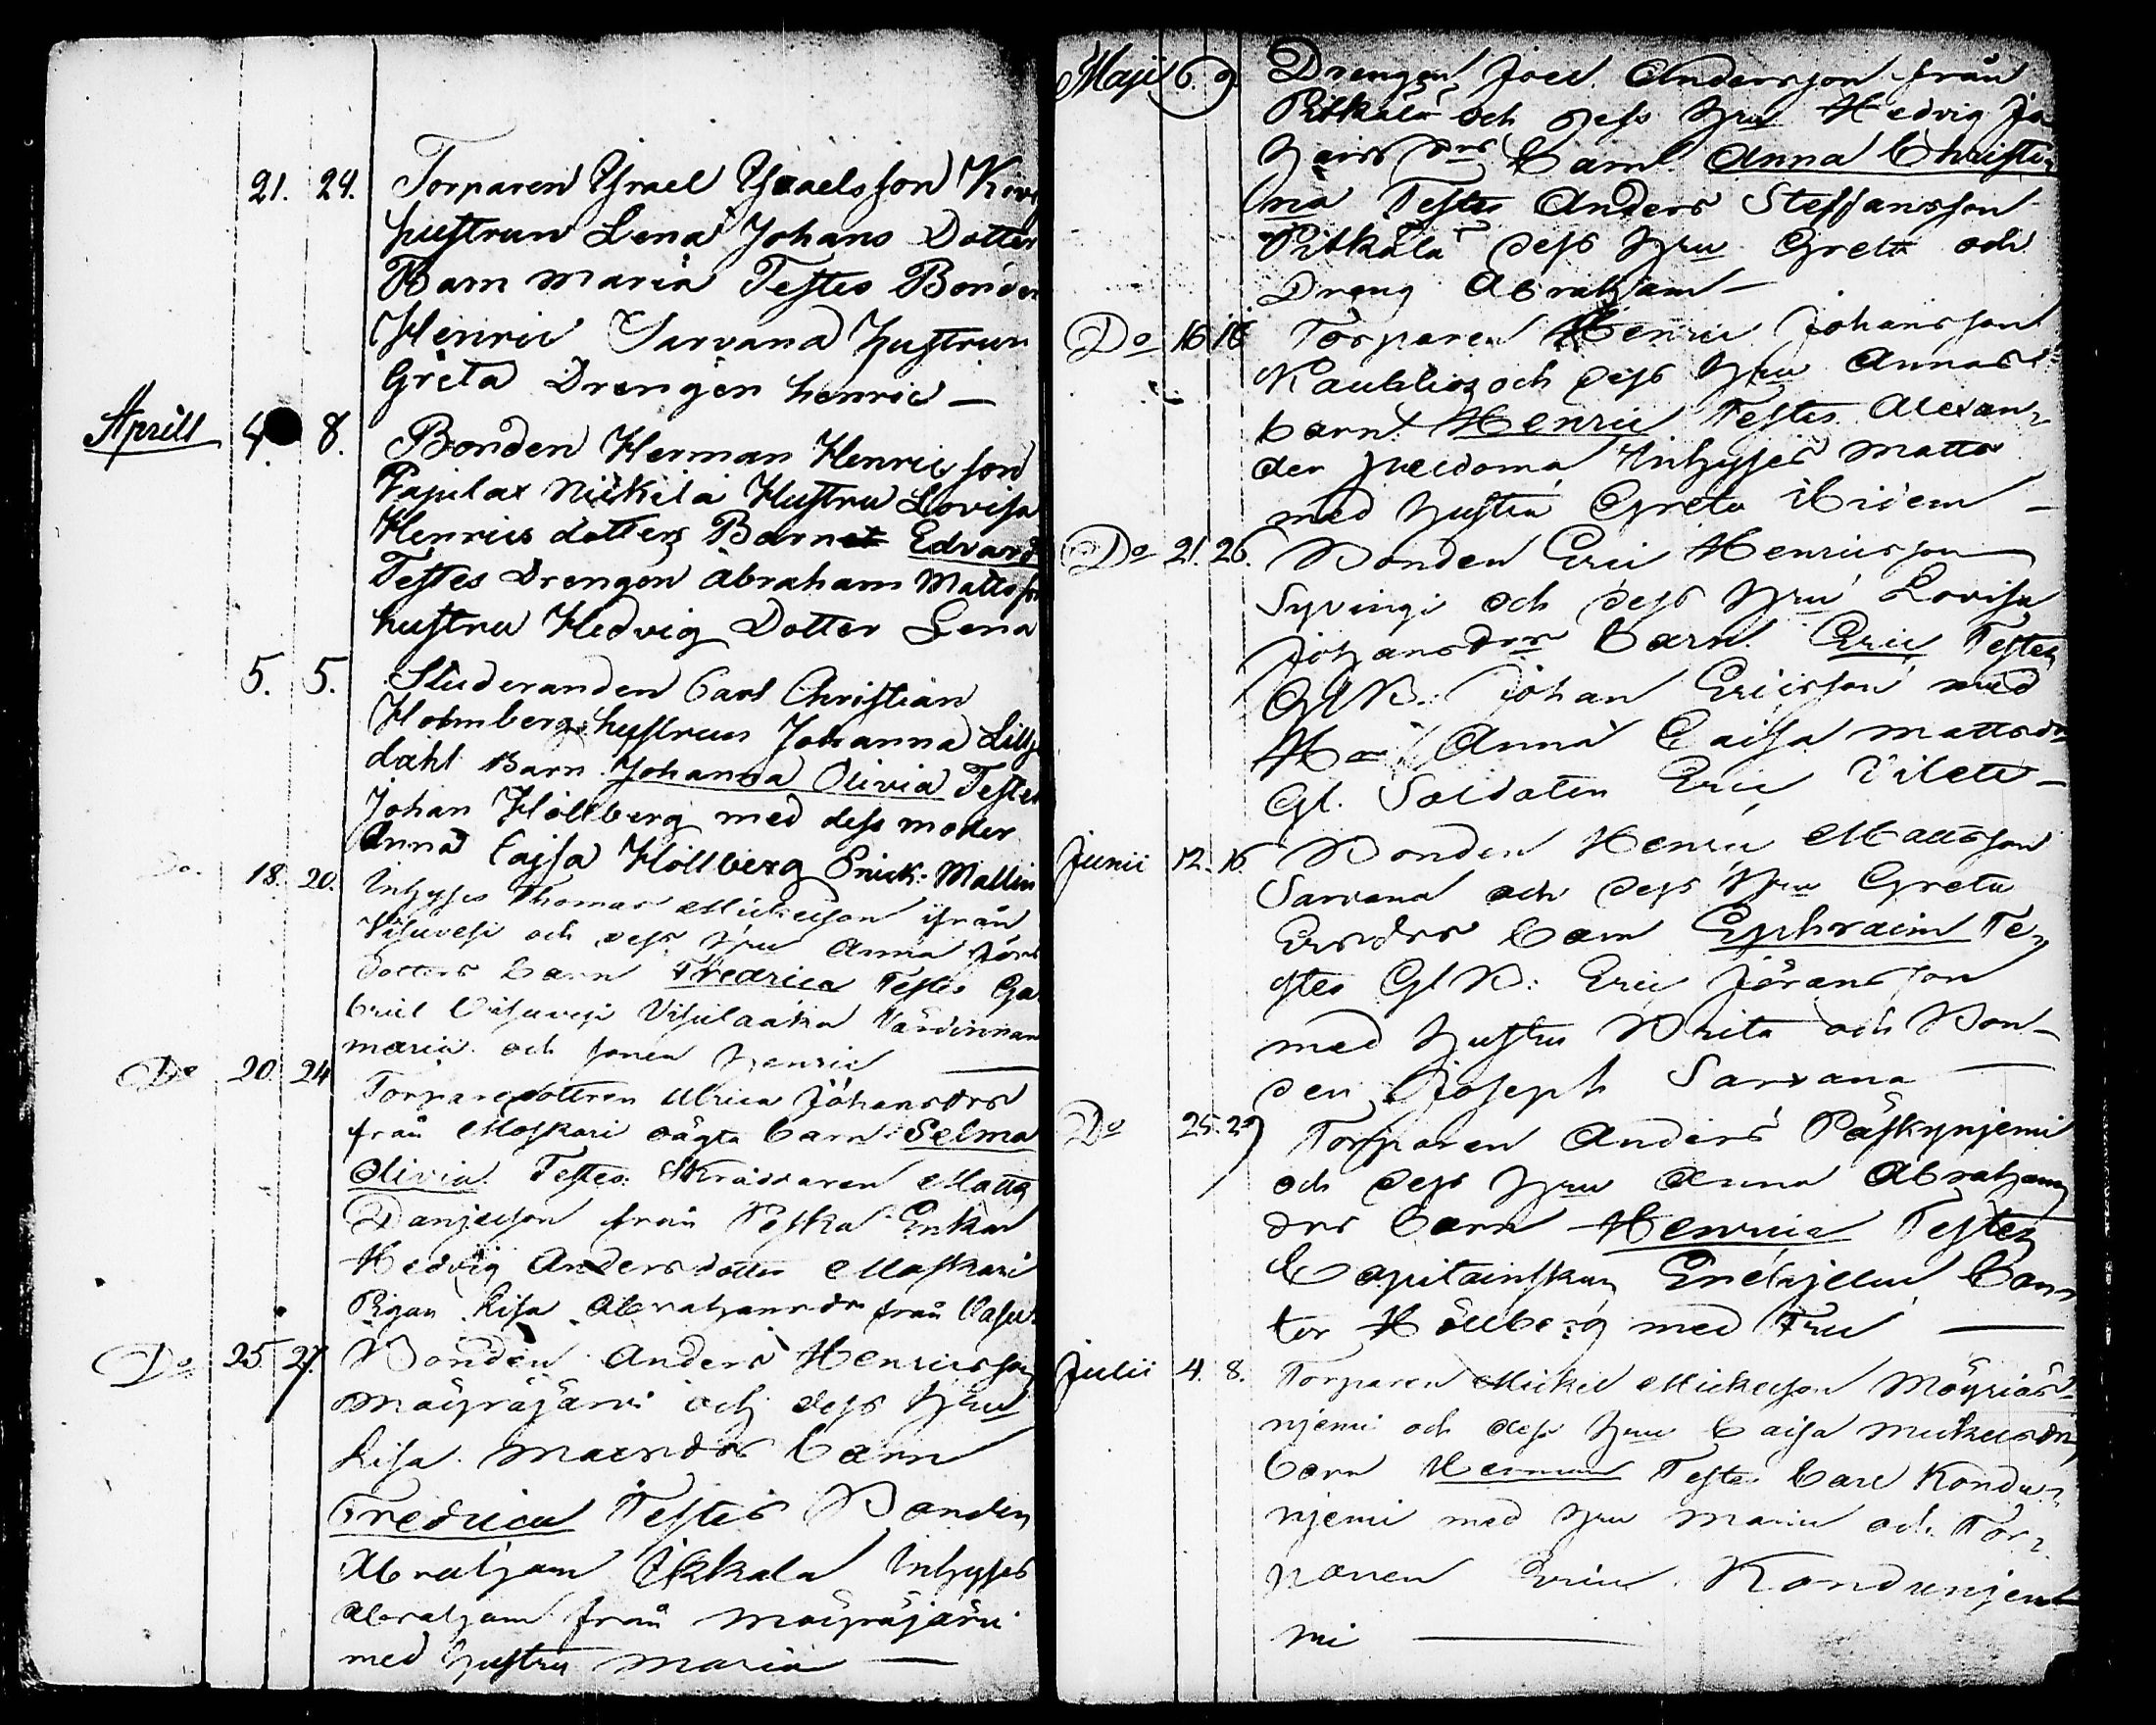 21. 24. Torparen Ysrael Ysraelsson
hustrun Lena Johans Dotter
Barn Maria Testes Bonden
Henric Sarvana hustrun
Greta Drengen henric —
Aprill 4. 8. Bonden Herman Henricsson
Papulax Nickilä Hustru Lovisa
Henrics dotters Barnet Edvard
Testes Drengen Abraham Mattsson
hustru Hedvig Dotter Lena
5. 5. Studeranden Carl Christian
Holmberg hustrun Johanna Lillje
dahl Barn Johanna Olivia Testes
Johan Höllberg med dess moder
Anna Cajsa Höllberg Enick: Mallin
Do. 18. 20. Inhyses Thomas Mickelson ifrån
Visuvesi och dess hru Anna
dotters barn Fredrica Testes Ga
briel Visuvesi Värdinnan
maria och sonen henric —
Do 20. 24 Torparedottren Ulrica Johansdrs
från Moskari oägta barn Selma
Olivia Testes: Skräddaren Matts
Danjelson från Peska Enkan
Hedvig Andersdotter Moskari
Pigan Lisa Abrahamsdr från
Do 25. 27. Bonden Anders Henricsson
Mäyräjärvi och dess hru
Lisa Matsdrs barn
Fredrica Testes Bonden
Abraham Ikkala Inhyses
Abraham från Mäyräjärvi
med hustru Maria —
Maji 6. 9. Drengen Joel Andersson från
Pitkälä och dess hru Hedvig Jo
hansdrs barn Anna Christi
na Testes Anders Steffansson
Pitkälä dess hru Greta och
Dreng Abraham —
Do 16 18 Torparen Henric Johansson
och dess hru Annas
barn Henric Testes Alexan
der Inhyses Matts
med hustru Greta ibidem —
Do 21. 26. Bonden Eric Henricsson
Syvingi och dess hru Lovisa
Johansdrs barn Eric Testes
Gl B: Johan Ericsson med
Anna Caisa Mattsdr
Gl. Soldaten Eric —
Junii 12. 16 Bonden Henric Mattsson
Sarvana och dess hru Greta
Ersdrs barn Ephraim Te
stes Gl B: Eric Jöransson
med hustru Brita och Bon
den Joseph Sarvana —
Do 25. 29 Torparen Anders Päskynjemi
och dess hru Anna Abrahams
drs barn Henrica Testes
Capitainskan Enehjelm Can
tor Höllberg med Fru —
Julii 4. 8. Torparen Mickel Mickelson
njemi och dess hru Caisa Mickelsdrs
barn Herman Testes Carl Kondu
njemi med hru Maria och Tor
paren Eric Kondunjem
mi —